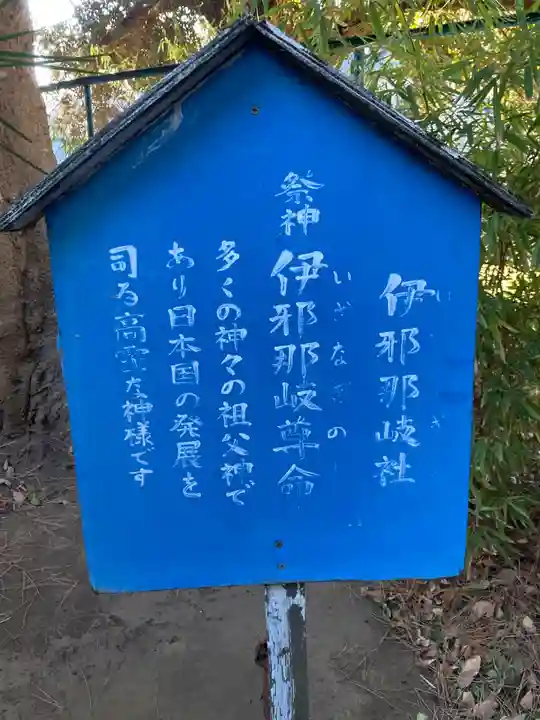 伊邪那岐社
いざ
祭神 伊邪那岐尊命
いざなぎの
多くの神々の祖父神で
あり日本国の発展を
司る高霊な神様です